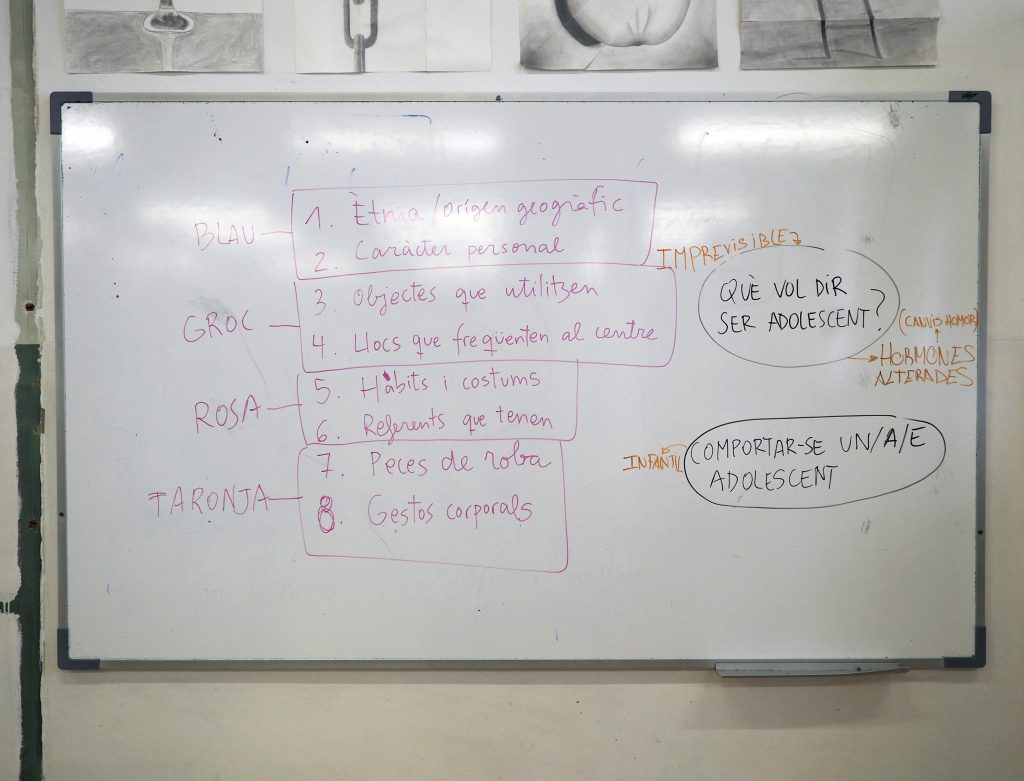 BLAU
1. Ètnia/orígen geogràfic
2. Caràcter personal
GROC
3. Objectes que utilitzen
4. Llocs que freqüenten al centre
ROSA
5. Hàbits i costums
6. Referents que tenen
TARONJA
7. Peces de roba
8. Gestos corporals
IMPREVISIBLE
QUÈ VOL DIR
SER ADOLESCENT?
(CANVIS HUMOR)
HORMONES
ALTERADES
INFANTIL
COMPORTAR-SE UN/A/E
ADOLESCENT